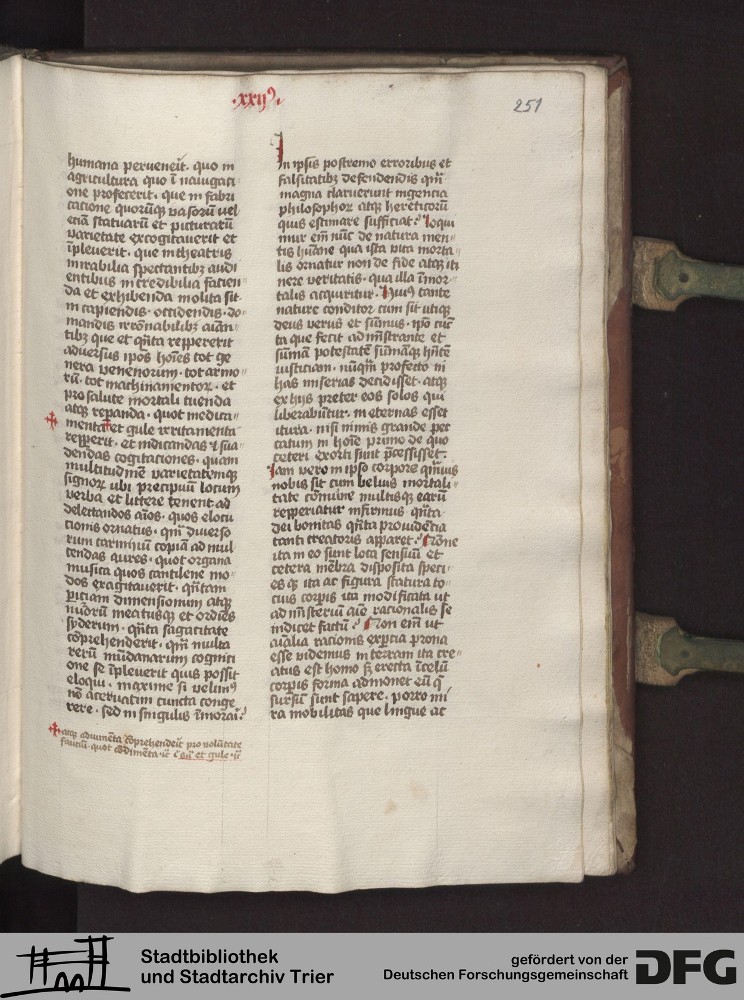 .xxij⁹.
251
humana peruenerit. quo in
agricultura quo ī nauigati
one profecerit. que in fabri
catione quorūqꝫ vasorū vel
etiā statuarū et picturarū
varietate excogitauerit et
īpleuerit. que in theatris
mirabilia spectantibꝫ audi
entibus incredibilia facien
da et exhibenda molita sit.
in capiendis. occidendis. do
mandis irrōnabilibꝫ aīan
tibꝫ que et qn̄ta reppererit
aduersus ipōs hoīes tot ge
nera venenorum. tot armo
rū. tot machinamentoꝝ. et
pro salute mortali tuenda
atqꝫ repanda. quot medica
menta et gule irritamenta
repperit. et indicandas ⁊ sua
dendas cogitaciones. quam
multitudinē varietatemqꝫ
signoꝝ vbi precipuū locum
verba et littere tenent ad
delectandos aīos. quos elocu
tionis ornatus. qm̄ diuerso
rum carminū copiā ad mul
cendas aures. quot organa
musica quos cantilene mo
dos exagitauerit. qn̄tam
piciam dimensionum atqꝫ
nūorū meatusqꝫ et ordīes
syderum. qn̄ta sagacitate
cōprehenderit. qm̄ multa
rerū mūdanarum cogniti
one se īpleuerit quis possit
eloqui. maxime si velim⁹
nō aceruatim cuncta conge
rere. sed in singulis īmorari?
atqꝫ adiumēta cōprehenderit pro volūtate
fauciū. quot cōdimēta
et gule
In ipsis postremo erroribus et
falsitatibꝫ defendendis qm̄
magna claruerunt ingenia
philosophoꝝ atqꝫ hereticorū
quis estimare sufficiat? loqui
mur em̄ nūc de natura men
tis hūane qua ista vita morta
lis ornatur non de fide atqꝫ iti
nere veritatis. qua illa īmor
talis acquiritur. Huius tante
nature conditor cum sit vtiqꝫ
deus verus et sūmus. ipō cūc
ta que fecit admīstrante et
sūmā potestatē sūmāqꝫ hn̄tē
iusticiam. nūqm̄ profecto in
has miserias decidisset. atqꝫ
ex hijs preter eos solos qui
liberabūtur. in eternas esset
itura. nisi nimis grande pec
catum in hoīe primo de quo
ceteri exorti sunt p̄cessisset.
Iam vero in ipso corpore qm̄uis
nobis sit cum beluis mortali
tate cōmune multisqꝫ earū
repperiatur infirmius. qn̄ta
dei bonitas qn̄ta prouidētia
tanti creatoris apparet? Nōne
ita in eo sunt loca sensuū et
cetera mēbra disposita speci
es qꝫ ita ac figura statura to
cius corpis ita modificata vt
ad mīsterium aīe racionalis se
indicet factū? Non em̄ vt
aīalia racionis expertia prona
esse videmus in terram ita cre
atus est homo sꝫ erecta ī celū
corpis forma admonet eū q̄
sursū sunt sapere. porro mi
ra mobilitas que lingue ac
Stadtbibliothek
und Stadtarchiv Trier
gefördert von der
Deutschen Forschungsgemeinschaft
DFG